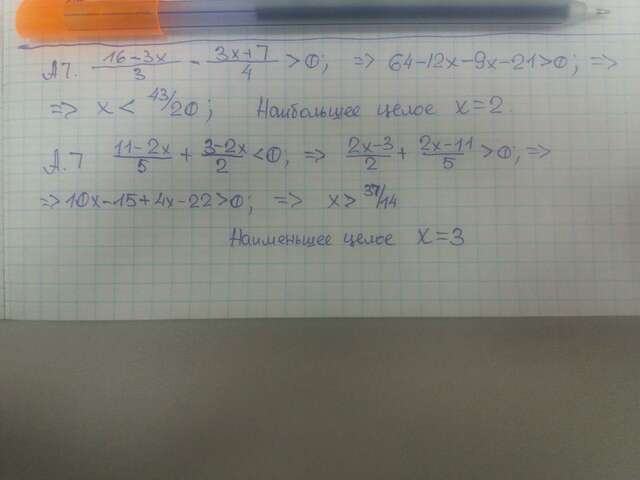 А7. (16-3x)/3 - (3x+7)/4 > 0; => 64-12x-9x-21>0; =>
=> x < 43/20; Наибольшее целое x=2.
А.7 (11-2x)/5 + (3-2x)/2 < 0; => (2x-3)/2 + (2x-11)/5 > 0; =>
=> 10x-15+4x-22>0; => x > 37/14
Наименьшее целое x=3